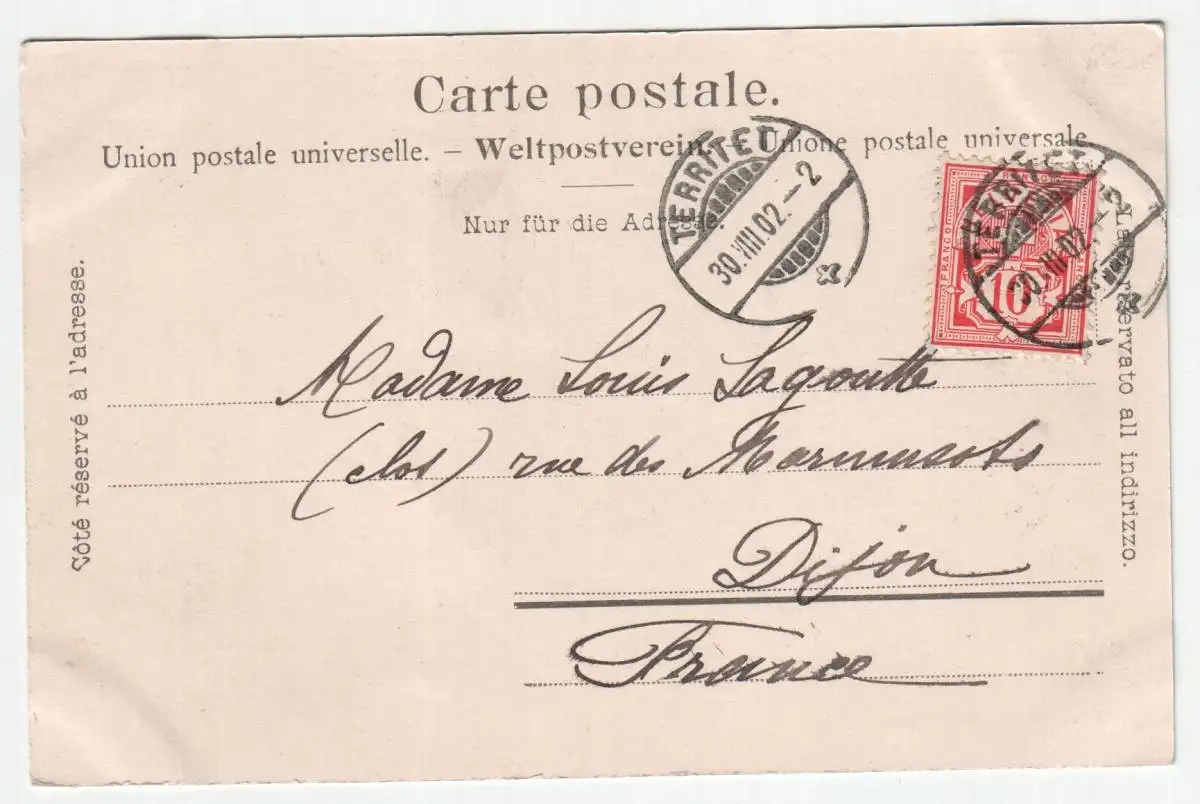 Carte postale.
Union postale universelle. – Weltpostverein. – Unione postale universale.
Nur für die Adresse.
Côté réservé à l'adresse.
Lato riservato all indirizzo.
TERRITET
30.VIII.02.–2
TERRITET
30.VIII.02.–2
FRANCO
10
Madame Louis Lagoutte
(clos) rue des Marmuzots
Dijon
France